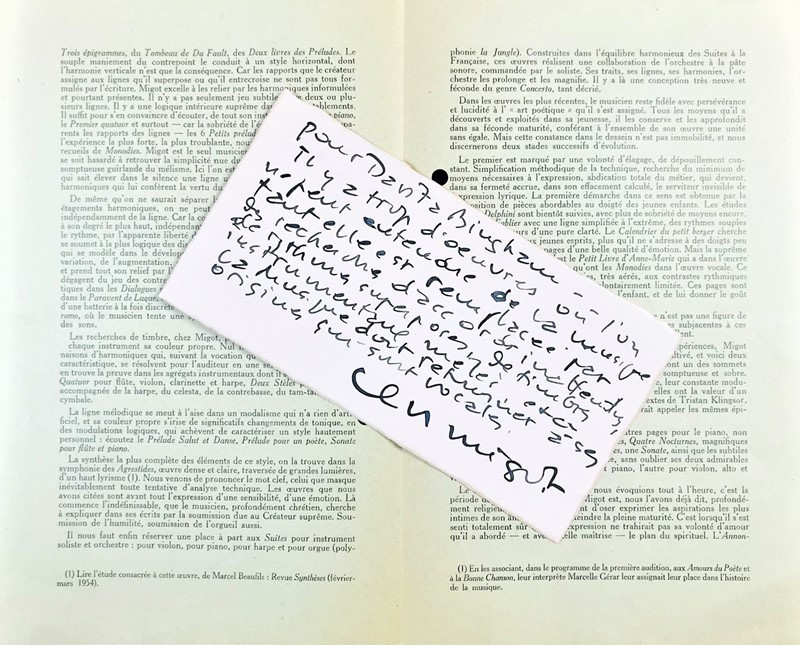 Trois épigrammes, du Tombeau de Du Fault, des Deux livres des Préludes. Le
souple maniement du contrepoint le conduit à un style horizontal, dont
l'harmonie verticale n'est que la conséquence. Car les rapports que le créateur
assigne aux lignes qu'il superpose ou qu'il entrecroise ne sont pas tous for-
mulés par l'écriture. Migot excelle à les relier par les harmoniques informulées
et pourtant présentes. Il n'y a pas seulement jeu subtil de deux ou plu-
sieurs lignes. Il y a une logique intérieure suprême
Il suffit pour s'en convaincre d'écouter, de tout son piano,
le Premier quatuor et surtout — car la sobriété de
rents les rapports des lignes — les 6 Petits
l'expérience la plus forte, la plus troublante,
recueils de Monodies. Migot est le seul
se soit hasardé à retrouver la simplicité nue
somptueuse guirlande du mélisme. Ici l'on
qui sait élever dans le silence une ligne
harmoniques qui lui confèrent la vertu du
De même qu'on ne saurait séparer
étagements harmoniques, on ne peut
indépendamment de la ligne. Car la
à son degré le plus haut,
le rythme, par l'apparente liberté
se soumet à la plus logique des
qui se modèle dans le
variation, de l'augmentation,
et prend tout son relief par
dégagent du jeu des
tiques dans les Dialogues
dans le Paravent de Laque,
d'une batterie à la fois discrète
romo, où le musicien tente une
des sons.
Les recherches de timbre, chez Migot,
chaque instrument sa couleur propre. Nul
naisons d'harmoniques qui, suivant la vocation
caractéristique, se résolvent pour l'auditeur en une
en trouve la preuve dans les agrégats instrumentaux dont il
Quatuor pour flûte, violon, clarinette et harpe, Deux Stèles
accompagnée de la harpe, du celesta, de la contrebasse, du tam-
cymbale.
La ligne mélodique se meut à l'aise dans un modalisme qui n'a rien d'arti-
ficiel, et sa couleur propre s'irise de significatifs changements de tonique, en
des modulations logiques, qui achèvent de caractériser un style hautement
personnel : écoutez le Prélude Salut et Danse, Prélude pour un poète, Sonate
pour flûte et piano.
La synthèse la plus complète des éléments de ce style, on la trouve dans la
symphonie des Agrestides, œuvre dense et claire, traversée de grandes lumières,
d'un haut lyrisme (1). Nous venons de prononcer le mot clef, celui que masque
inévitablement toute tentative d'analyse technique. Les œuvres que nous
avons citées sont avant tout l'expression d'une sensibilité, d'une émotion. Là
commence l'indéfinissable, que le musicien, profondément chrétien, cherche
à expliquer dans ses écrits par la soumission due au Créateur suprême. Sou-
mission de l'humilité, soumission de l'orgueil aussi.
Il nous faut enfin réserver une place à part aux Suites pour instrument
soliste et orchestre : pour violon, pour piano, pour harpe et pour orgue (poly-
(1) Lire l'étude consacrée à cette œuvre, de Marcel Beaufils : Revue Synthèses (février-
mars 1954).
pour Davita Bingham —
Il y a trop d'oeuvres où l'on
ne peut entendre de la musique
tant elle est remplacée par
des recherches d'accords inattendus
de rythmes superposés de timbres
instrumentaux mêlés etc...
La musique doit retourner à ses
origines qui sont vocales.
migot
phonie la Jungle). Construites dans l'équilibre harmonieux des Suites à la
Française, ces œuvres réalisent une collaboration de l'orchestre à la pâte
sonore, commandée par le soliste. Ses traits, ses lignes, ses harmonies, l'or-
chestre les prolonge et les magnifie. Il y a là une conception très neuve et
féconde du genre Concerto, tant décrié.
Dans les œuvres les plus récentes, le musicien reste fidèle avec persévérance
et lucidité à l' « art poétique » qu'il s'est assigné. Tous les moyens qu'il a
découverts et exploités dans sa jeunesse, il les conserve et les approfondit
dans sa féconde maturité, conférant à l'ensemble de son œuvre une unité
sans égale. Mais cette constance dans le dessein n'est pas immobilité, et nous
discernerons deux stades successifs d'évolution.
Le premier est marqué par une volonté d'élagage, de dépouillement con-
stant. Simplification méthodique de la technique, recherche du minimum de
moyens nécessaires à l'expression, abdication totale du métier, qui devient,
dans sa fermeté accrue, dans son effacement calculé, le serviteur invisible de
expression lyrique. La première démarche dans ce sens est obtenue par la
position de pièces abordables au doigté des jeunes enfants. Les études
Delphini sont bientôt suivies, avec plus de sobriété de moyens encore,
blier avec une ligne simplifiée à l'extrême, des rythmes souples
urs d'une pure clarté. Le Calendrier du petit berger cherche
jeunes esprits, plus qu'il ne s'adresse à des doigts peu
ages d'une belle qualité d'émotion. Mais la suprême
est le Petit Livre d'Anne-Marie qui a dans l'œuvre
qu'ont les Monodies dans l'œuvre vocale. Ce
très aérés, aux contrastes rythmiques
lontairement limitée. Ces pages sont
enfant, et de lui donner le goût
n'est pas une figure de
subjacentes à ces
périences, Migot
tivé, et voici deux
nt un des sommets
omptueuse et sobre.
leur constante modu-
elles ont la valeur d'un
textes de Tristan Klingsor,
rait appeler les mêmes épi-
utres pages pour le piano, non
Quatre Nocturnes, magnifiques
une Sonate, ainsi que les subtiles
sans oublier ses deux admirables
piano, l'autre pour violon, alto et
nous évoquions tout à l'heure, c'est la
période Migot est, nous l'avons déjà dit, profondé-
ment d'oser exprimer les aspirations les plus
intimes de son teindre la pleine maturité. C'est lorsqu'il s'est
senti totalement sûr expression ne trahirait pas sa volonté d'amour
qu'il a abordé — et avec elle maîtrise — le plan du spirituel. L'Annon-
(1) En les associant, dans le programme de la première audition, aux Amours du Poète et
à la Bonne Chanson, leur interprète Marcelle Gérar leur assignait leur place dans l'histoire
de la musique.